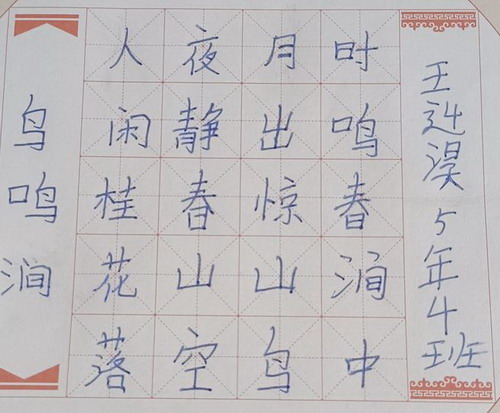 鸟鸣涧
人闲桂花落
夜静春山空
月出惊山鸟
时鸣春涧中
王 5年4班